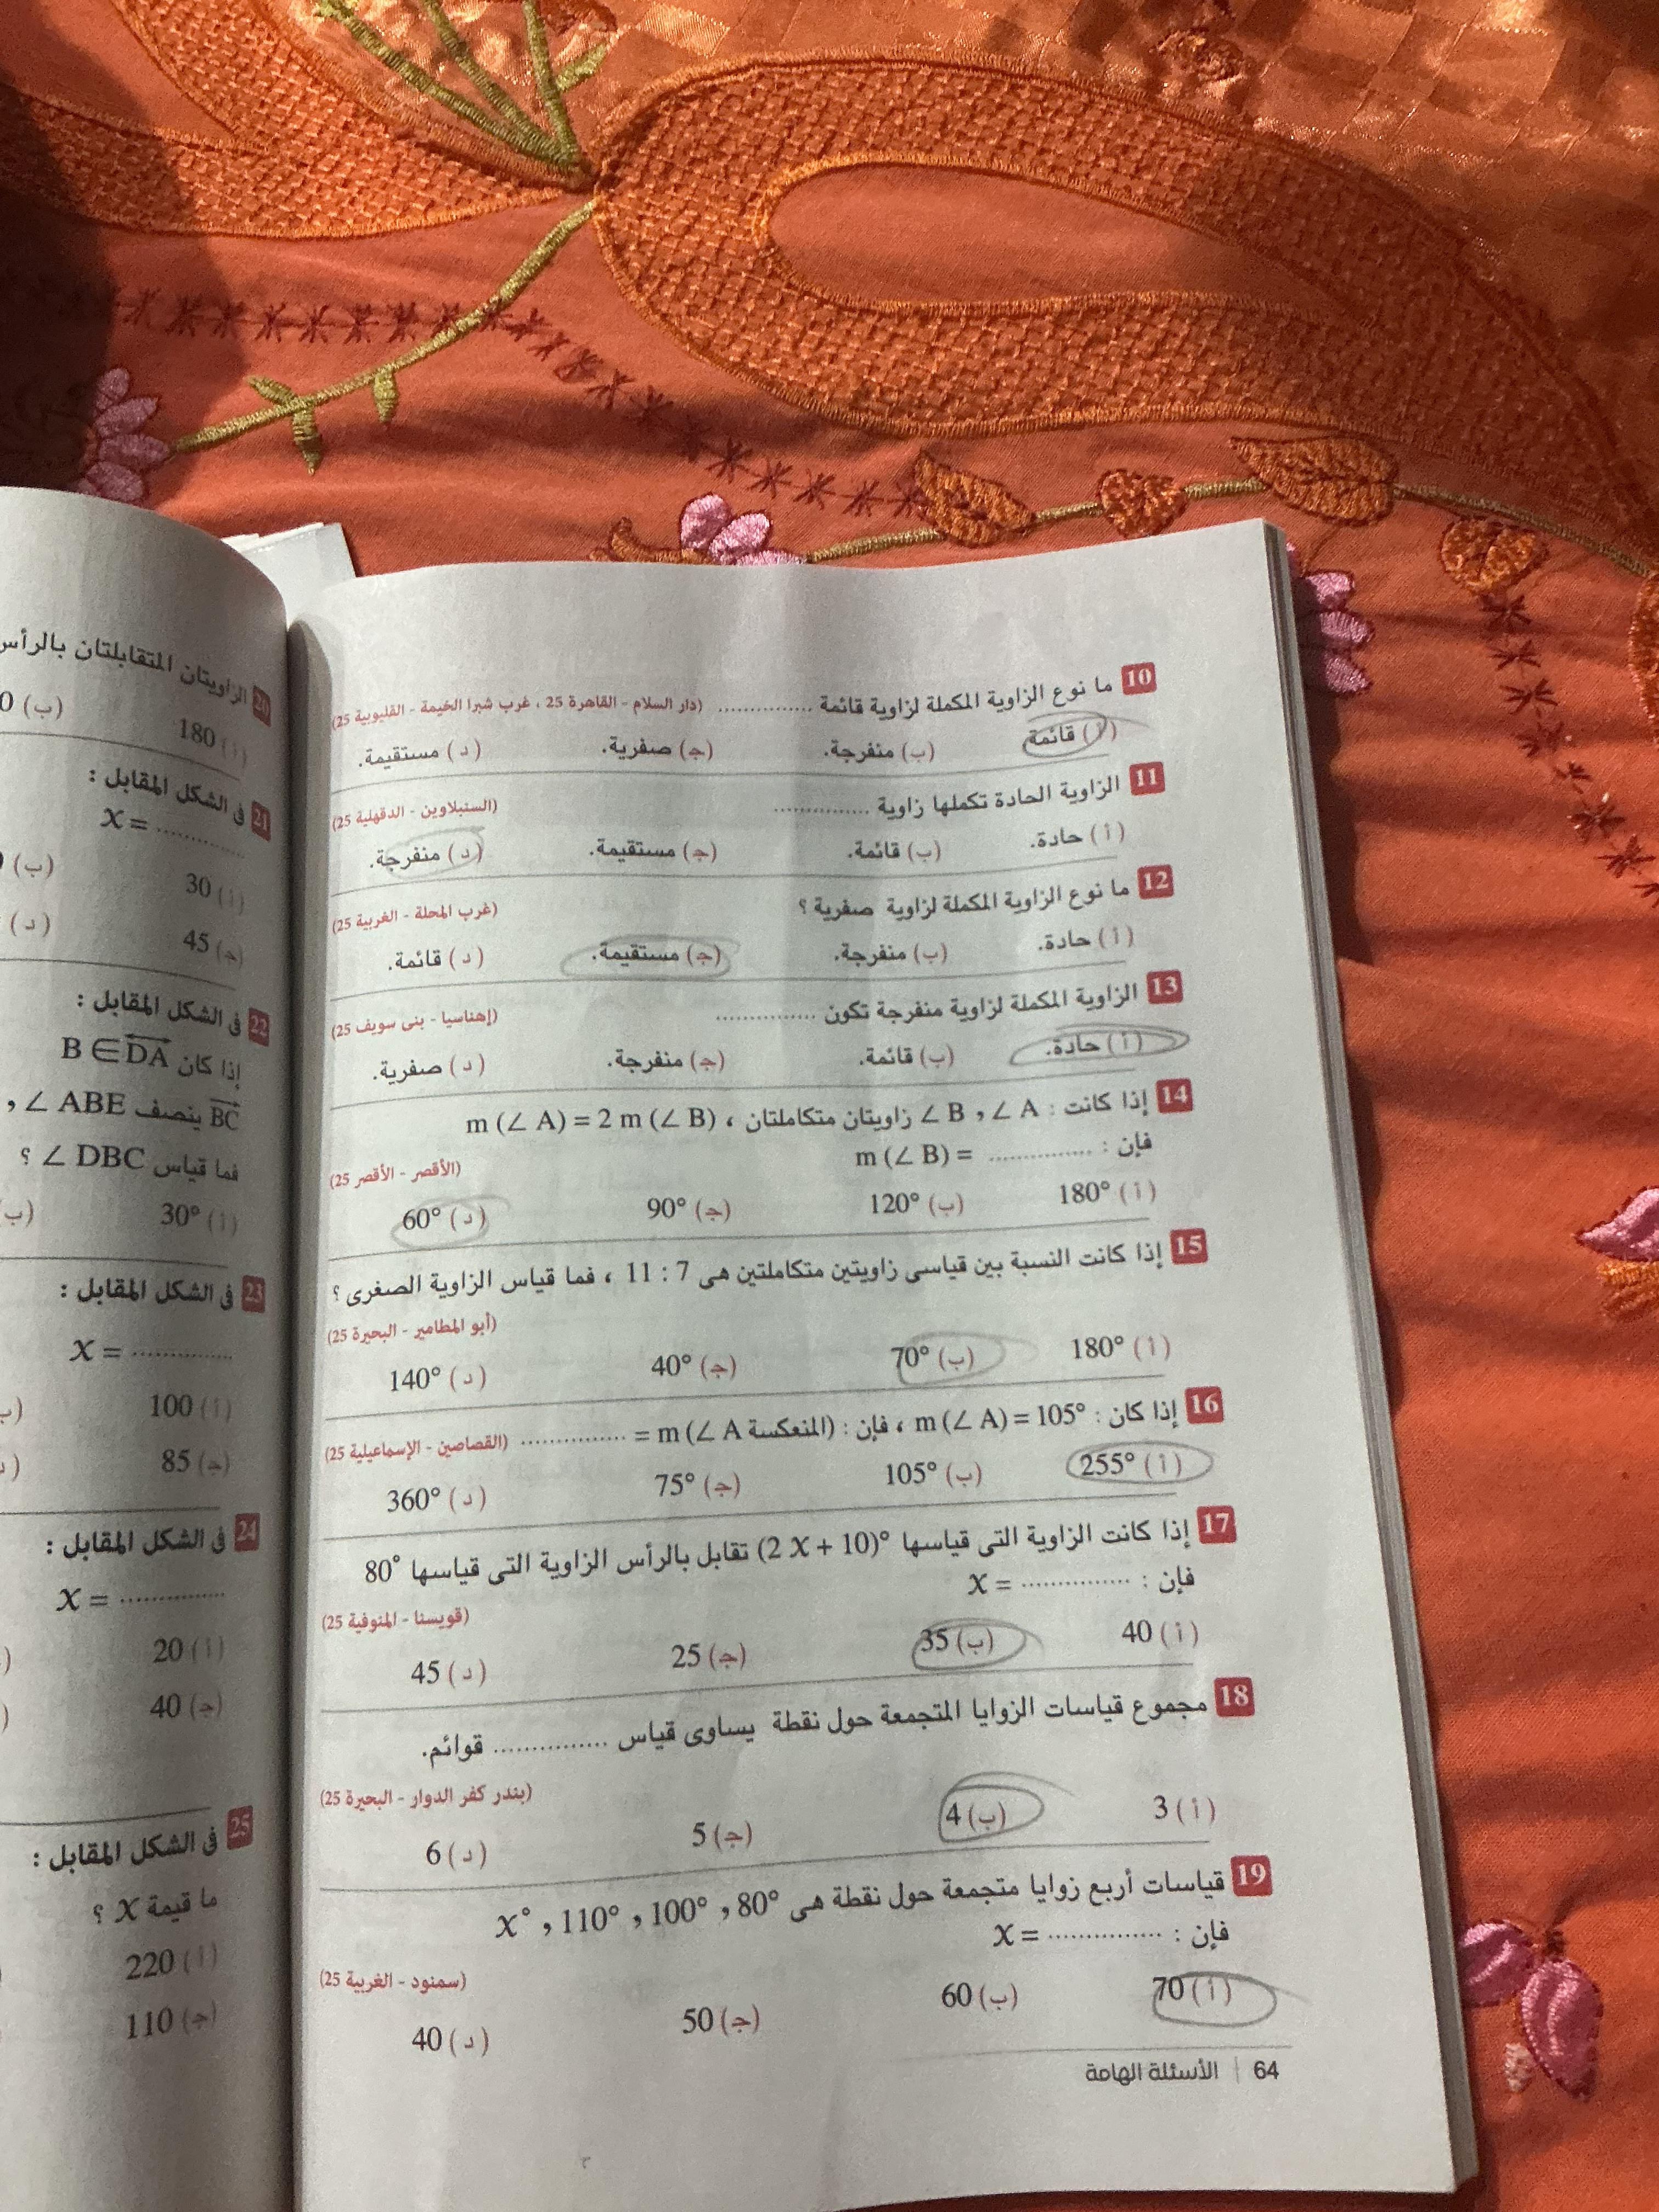 10 ما نوع الزاوية المكملة لزاوية قائمة ............... (دار السلام - القاهرة 25 ، غرب شبرا الخيمة - القليوبية 25)
(أ) قائمة (ب) منفرجة. (ج) صفرية. (د) مستقيمة.
11 الزاوية الحادة تكملها زاوية ............... (السنبلاوين - الدقهلية 25)
(أ) حادة. (ب) قائمة. (ج) مستقيمة. (د) منفرجة.
12 ما نوع الزاوية المكملة لزاوية صفرية ؟ (غرب المحلة - الغربية 25)
(أ) حادة. (ب) منفرجة. (ج) مستقيمة. (د) قائمة.
13 الزاوية المكملة لزاوية منفرجة تكون ............... (إهناسيا - بنى سويف 25)
(أ) حادة. (ب) قائمة. (ج) منفرجة. (د) صفرية.
14 إذا كانت : ∠ B , ∠ A زاويتان متكاملتان ، m (∠ A) = 2 m (∠ B)
فإن : m (∠ B) = ............... (الأقصر - الأقصر 25)
(أ) 180° (ب) 120° (ج) 90° (د) 60°
15 إذا كانت النسبة بين قياسى زاويتين متكاملتين هى 7 : 11 ، فما قياس الزاوية الصغرى ؟
(أبو المطامير - البحيرة 25)
(أ) 180° (ب) 70° (ج) 40° (د) 140°
16 إذا كان : m (∠ A) = 105° ، فإن : m (∠ A المنعكسة) = ............... (القصاصين - الإسماعيلية 25)
(أ) 255° (ب) 105° (ج) 75° (د) 360°
17 إذا كانت الزاوية التى قياسها (2 X + 10)° تقابل بالرأس الزاوية التى قياسها 80°
فإن : X = ............... (قويسنا - المنوفية 25)
(أ) 40 (ب) 35 (ج) 25 (د) 45
18 مجموع قياسات الزوايا المتجمعة حول نقطة يساوى قياس ............... قوائم.
(بندر كفر الدوار - البحيرة 25)
(أ) 3 (ب) 4 (ج) 5 (د) 6
19 قياسات أربع زوايا متجمعة حول نقطة هى X° , 110° , 100° , 80°
فإن : X = ...............
(سمنود - الغربية 25)
(أ) 70 (ب) 60 (ج) 50 (د) 40
64 | الأسئلة الهامة
20 الزاويتان المتقابلتان بالرأس
(أ) 180 (ب)
21 فى الشكل المقابل :
X = ...............
(أ) 30 (ب)
(ج) 45 (د)
22 فى الشكل المقابل :
إذا كان B ∈ DA
BC ينصف ∠ ABE ,
فما قياس ∠ DBC ؟
(أ) 30° (ب)
23 فى الشكل المقابل :
X = ...............
(أ) 100
(ج) 85
24 فى الشكل المقابل :
X = ...............
(أ) 20
(ج) 40
25 فى الشكل المقابل :
ما قيمة X ؟
(أ) 220
(ج) 110